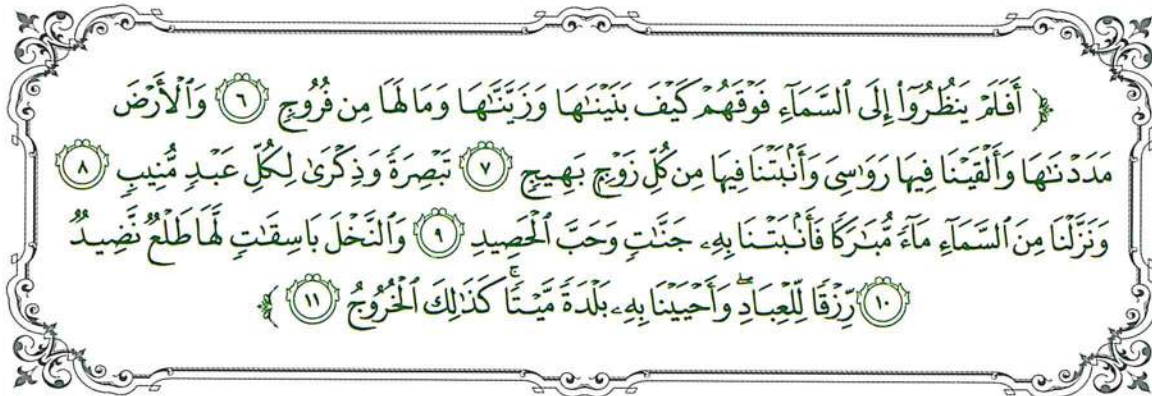 ﴿ أَفَلَمْ يَنظُرُوٓا۟ إِلَى ٱلسَّمَآءِ فَوْقَهُمْ كَيْفَ بَنَيْنَـٰهَا وَزَيَّنَّـٰهَا وَمَا لَهَا مِن فُرُوجٍ ٦ وَٱلْأَرْضَ
مَدَدْنَـٰهَا وَأَلْقَيْنَا فِيهَا رَوَٰسِىَ وَأَنۢبَتْنَا فِيهَا مِن كُلِّ زَوْجٍۭ بَهِيجٍ ٧ تَبْصِرَةً وَذِكْرَىٰ لِكُلِّ عَبْدٍ مُّنِيبٍ ٨
وَنَزَّلْنَا مِنَ ٱلسَّمَآءِ مَآءً مُّبَـٰرَكًا فَأَنۢبَتْنَا بِهِۦ جَنَّـٰتٍ وَحَبَّ ٱلْحَصِيدِ ٩ وَٱلنَّخْلَ بَاسِقَـٰتٍ لَّهَا طَلْعٌ نَّضِيدٌ
١٠ رِّزْقًا لِّلْعِبَادِ ۖ وَأَحْيَيْنَا بِهِۦ بَلْدَةً مَّيْتًا ۚ كَذَٰلِكَ ٱلْخُرُوجُ ١١ ﴾